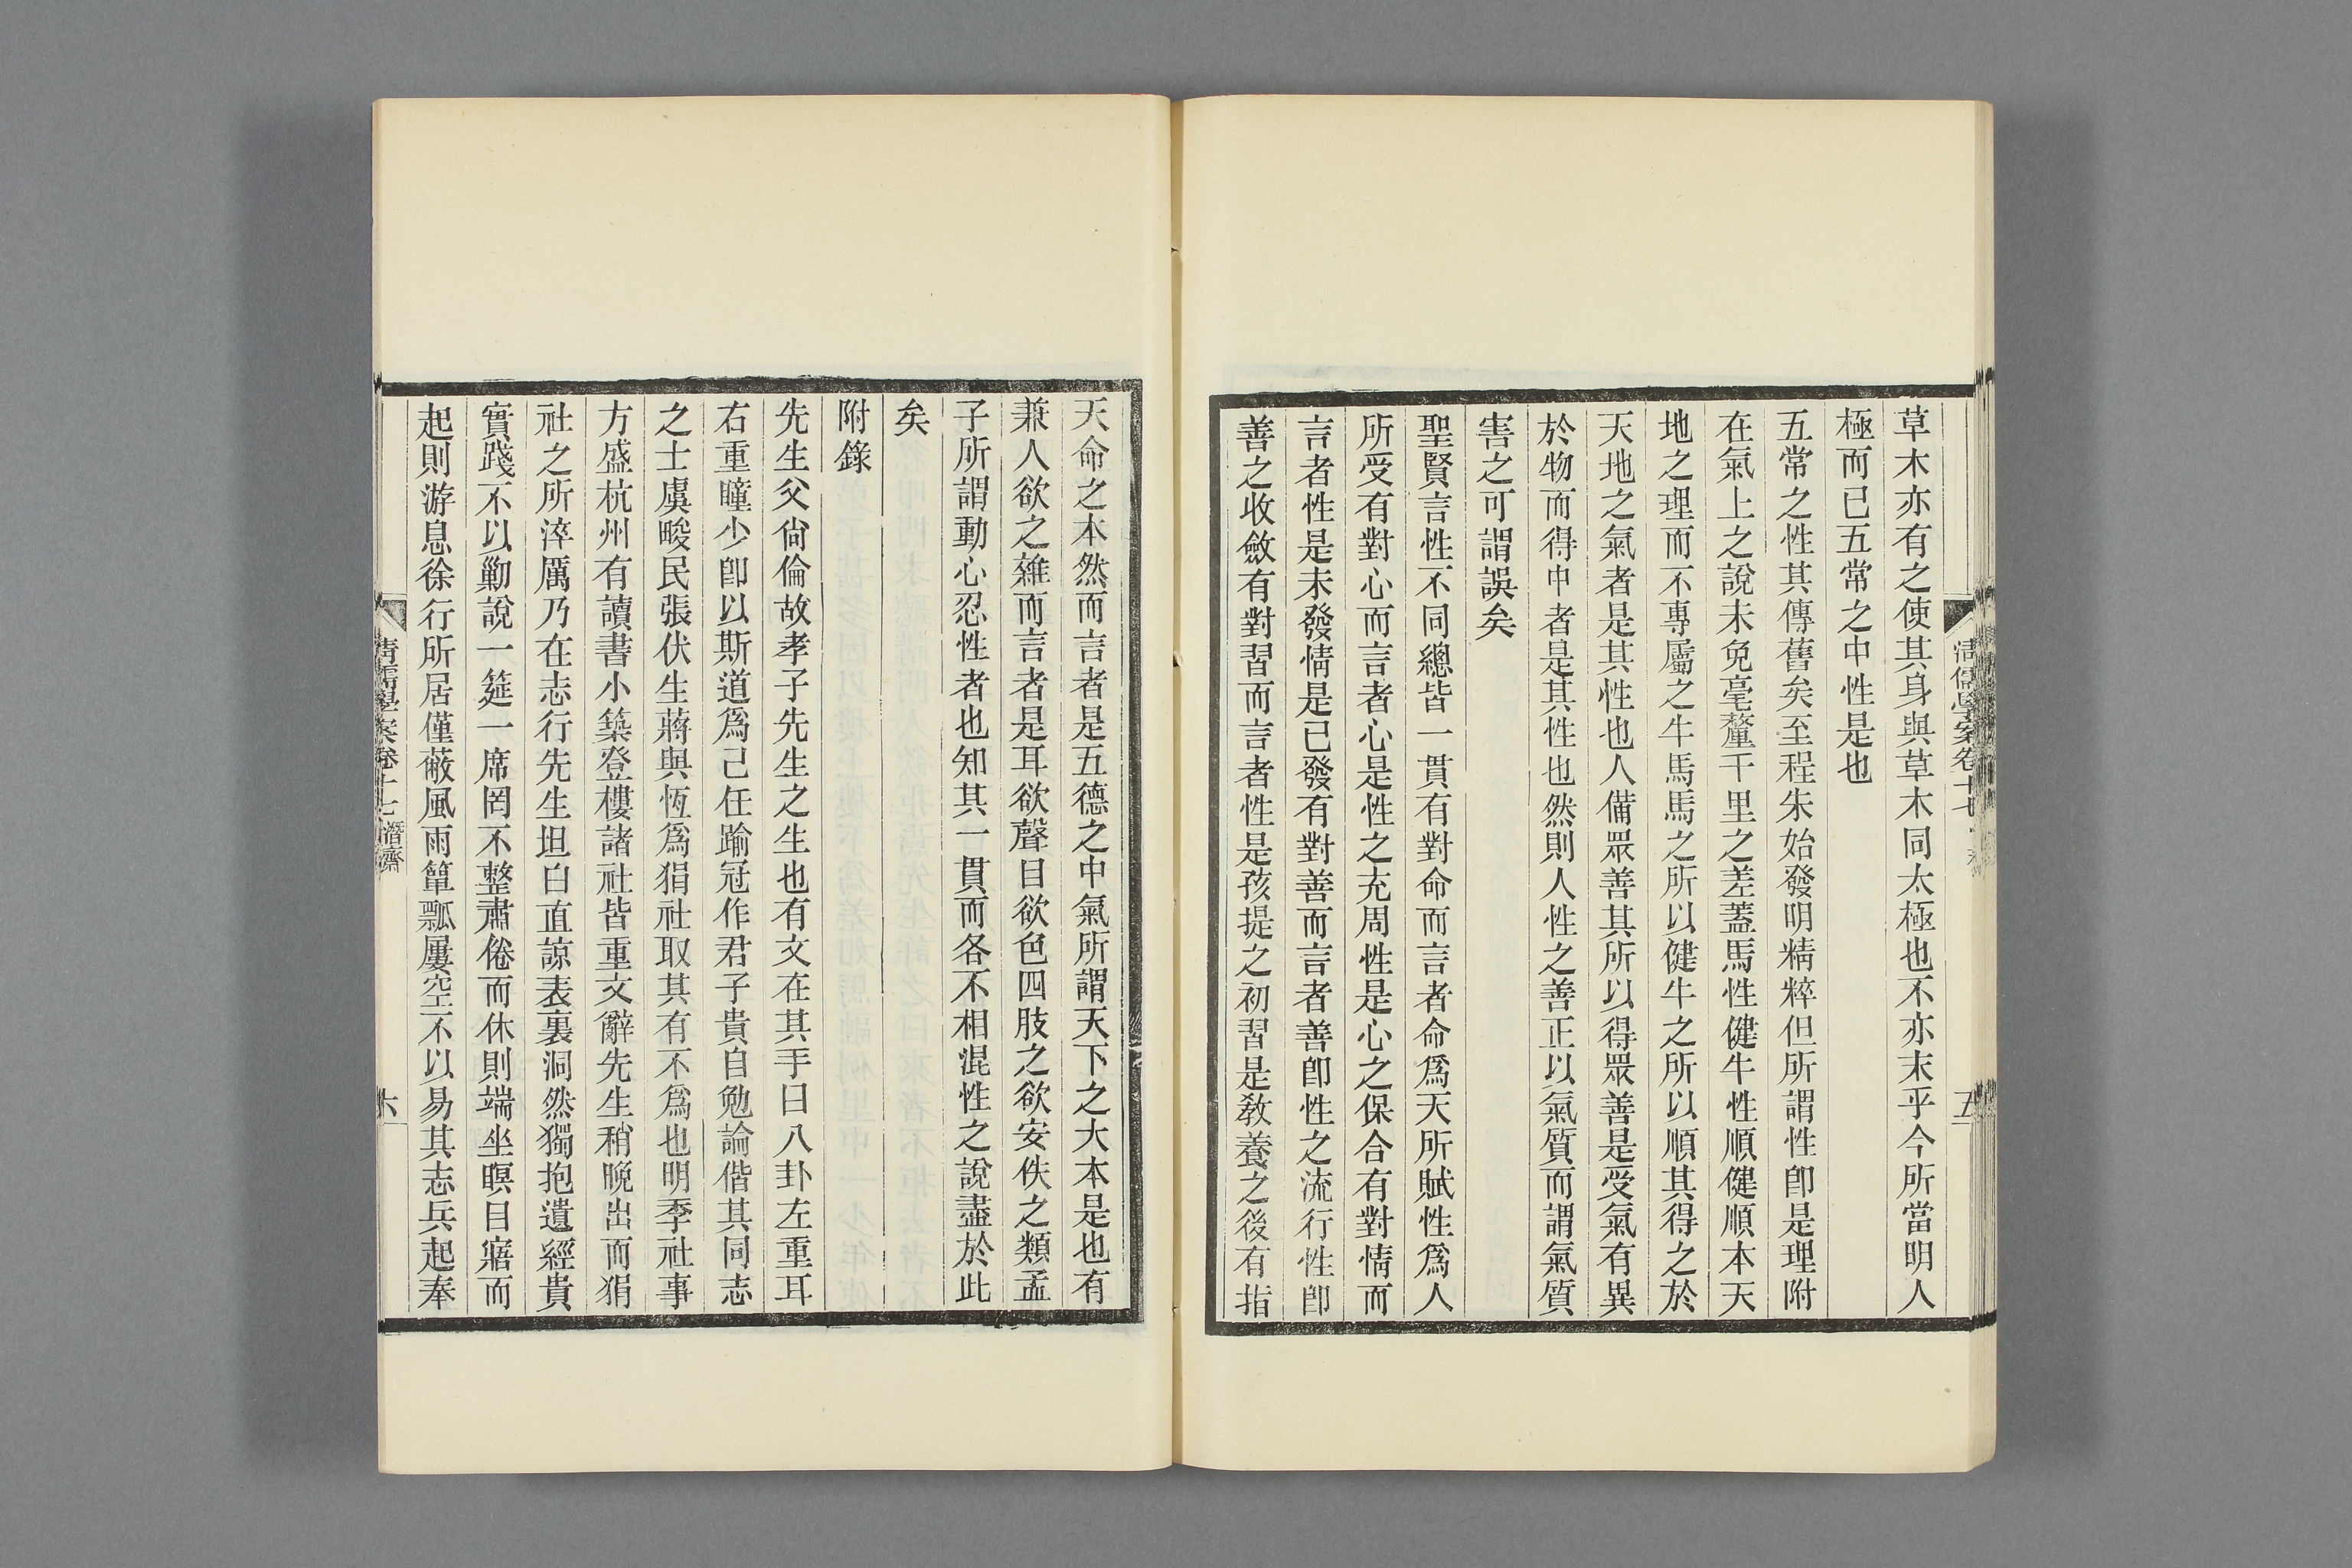 草木亦有之使其身與草木同太極也不亦末乎今所當明人
極而已五常之中性是也
五常之性其傳舊矣至程朱始發明精粹但所謂性卽是理附
在氣上之說未免毫釐千里之差蓋馬性健牛性順健順本天
地之理而不專屬之牛馬馬之所以健牛之所以順其得之於
天地之氣者是其性也人備眾善其所以得眾善是受氣有異
於物而得中者是其性也然則人性之善正以氣質而謂氣質
害之可謂誤矣
聖賢言性不同總皆一貫有對命而言者命爲天所賦性爲人
所受有對心而言者心是性之充周性是心之保合有對情而
言者性是未發情是已發有對善而言者善卽性之流行性卽
善之收斂有對習而言者性是孩提之初習是教養之後有指
清儒學案卷十七
五
天命之本然而言者是五德之中氣所謂天下之大本是也有
兼人欲之雜而言者是耳欲聲目欲色四肢之欲安佚之類孟
子所謂動心忍性者也知其一貫而各不相混性之說盡於此
矣
附錄
先生父尙倫故孝子先生之生也有文在其手曰八卦左重耳
右重瞳少卽以斯道爲己任踰冠作君子貴自勉論偕其同志
之士虞畯民張伏生蔣與恆爲狷社取其有不爲也明季社事
方盛杭州有讀書小築登樓諸社皆重文辭先生稍晚出而狷
社之所淬厲乃在志行先生坦白直諒表裏洞然獨抱遺經貴
實踐不以勦說一筵一席罔不整肅倦而休則端坐瞑目寤而
起則游息徐行所居僅蔽風雨簞瓢屢空不以易其志兵起奉
清儒學案卷十七 潛齋
六